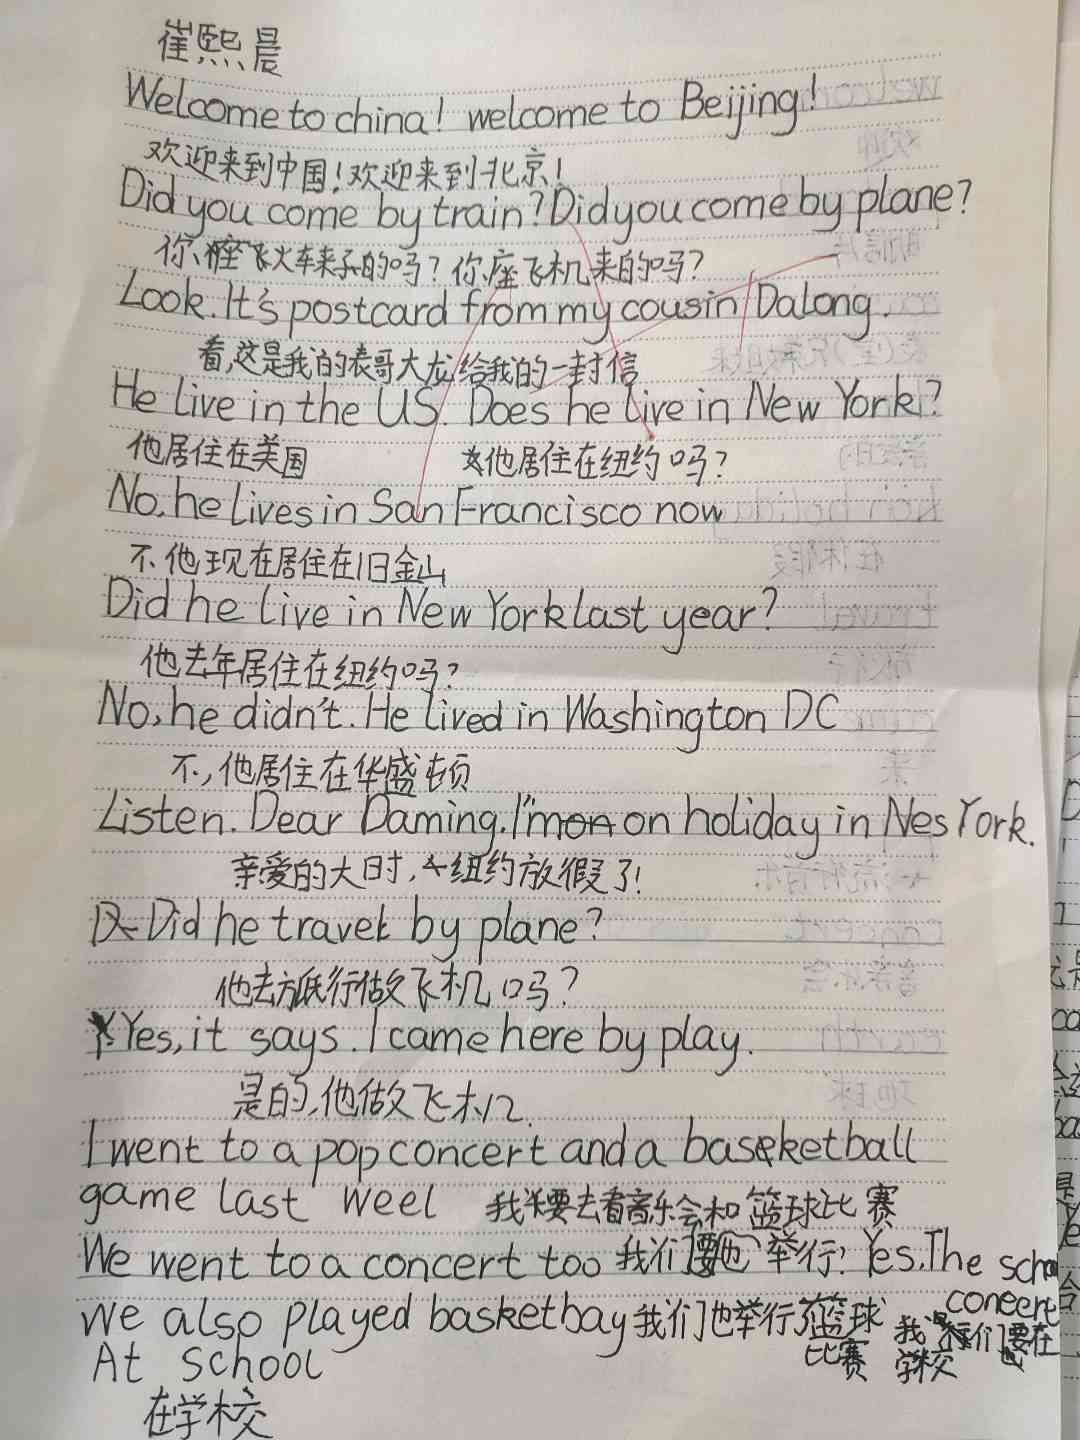 崔熙晨
Welcome to china! welcome to Beijing!
欢迎来到中国!欢迎来到北京!
Did you come by train? Did you come by plane?
你座火车来的吗?你座飞机来的吗?
Look. It's postcard from my cousin Dalong.
看,这是我的表哥大龙给我的一封信
He live in the US. Does he live in New York?
他居住在美国 他居住在纽约吗?
No, he lives in San Francisco now
不.他现在居住在旧金山
Did he live in New York last year?
他去年居住在纽约吗?
No, he didn't. He lived in Washington DC
不,他居住在华盛顿
Listen. Dear Daming. I'm on holiday in Nes York.
亲爱的大明,纽约放假了!
Did he travel by plane?
他去旅行做飞机吗?
Yes, it says. I came here by play.
是的,他做飞机
I went to a pop concert and a basketball
game last weel 我要去看音乐会和篮球比赛
We went to a concert too 我们也举行! Yes. The
concert
We also played basketbay 我们也举行了篮球
比赛
我们要在
学校
At school
在学校